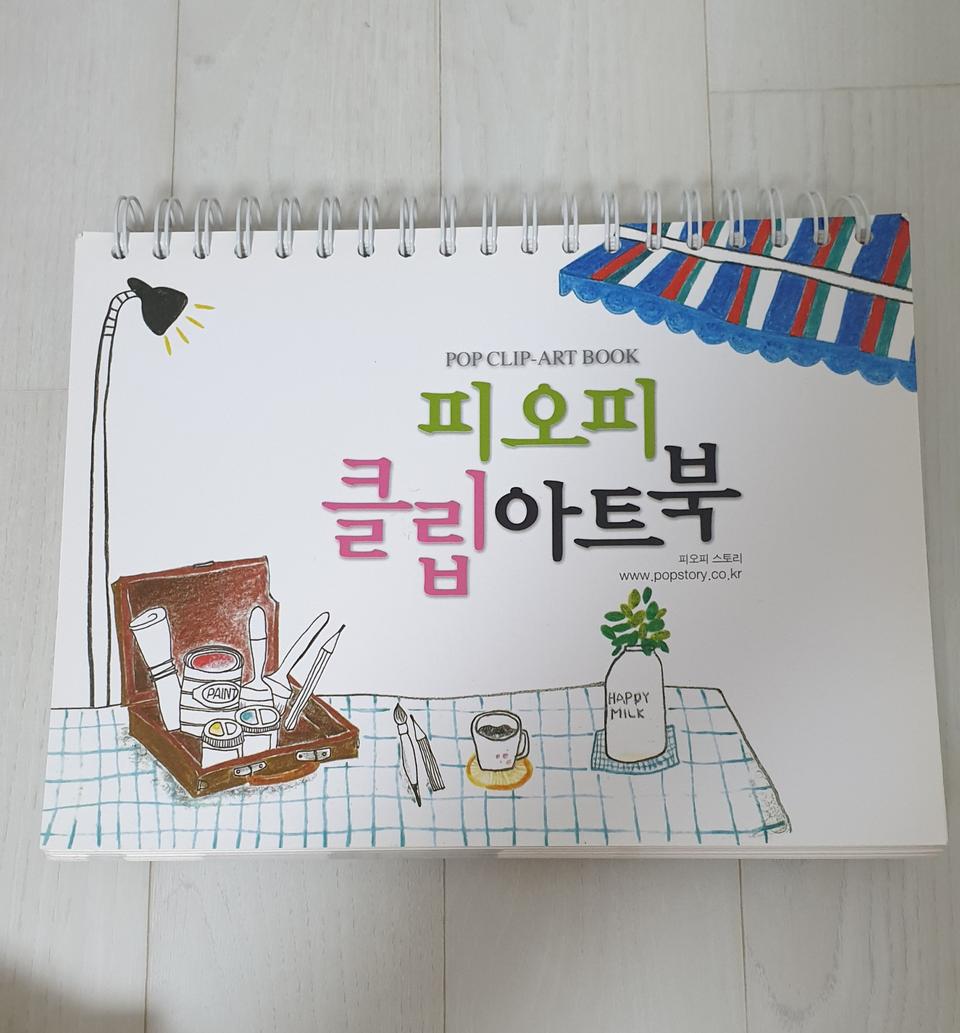 POP CLIP-ART BOOK
피오피
클립아트북
피오피 스토리
www.popstory.co.kr
PAINT
HAPPY
MILK